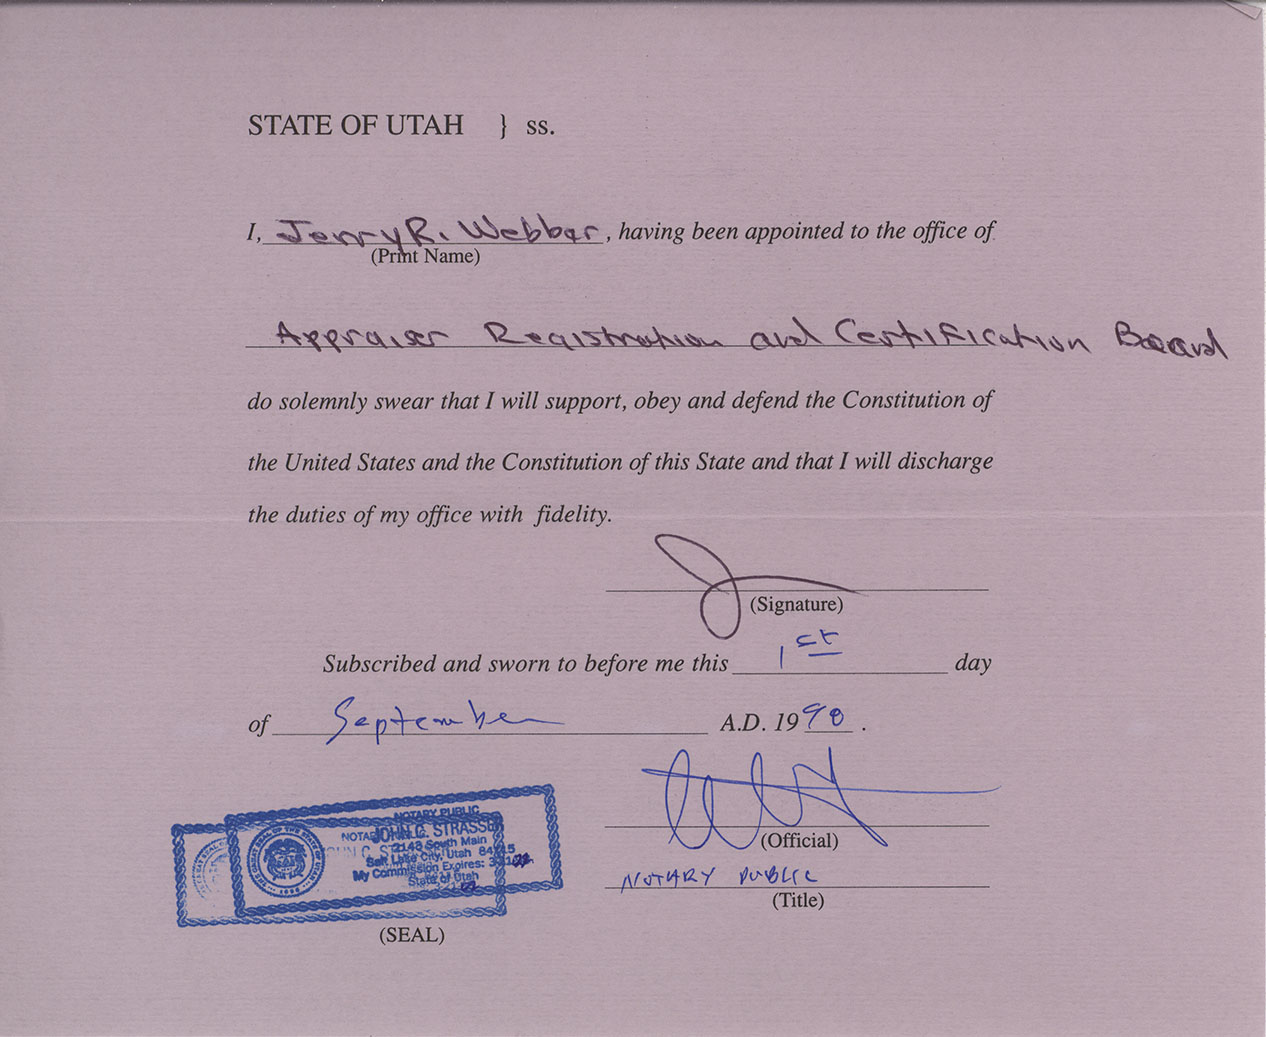 STATE OF UTAH } ss.
I, Jerry R. Webber, having been appointed to the office of
(Print Name)
Appraiser Registration and Certification Board
do solemnly swear that I will support, obey and defend the Constitution of
the United States and the Constitution of this State and that I will discharge
the duties of my office with fidelity.
(Signature)
Subscribed and sworn to before me this 1st day
of September A.D. 1990.
(Official)
NOTARY PUBLIC
(Title)
NOTARY PUBLIC
JOHN C. STRASSER
2143 South Main
Salt Lake City, Utah 84115
My Commission Expires:
State of Utah
THE GREAT SEAL OF THE STATE OF UTAH
1896
(SEAL)